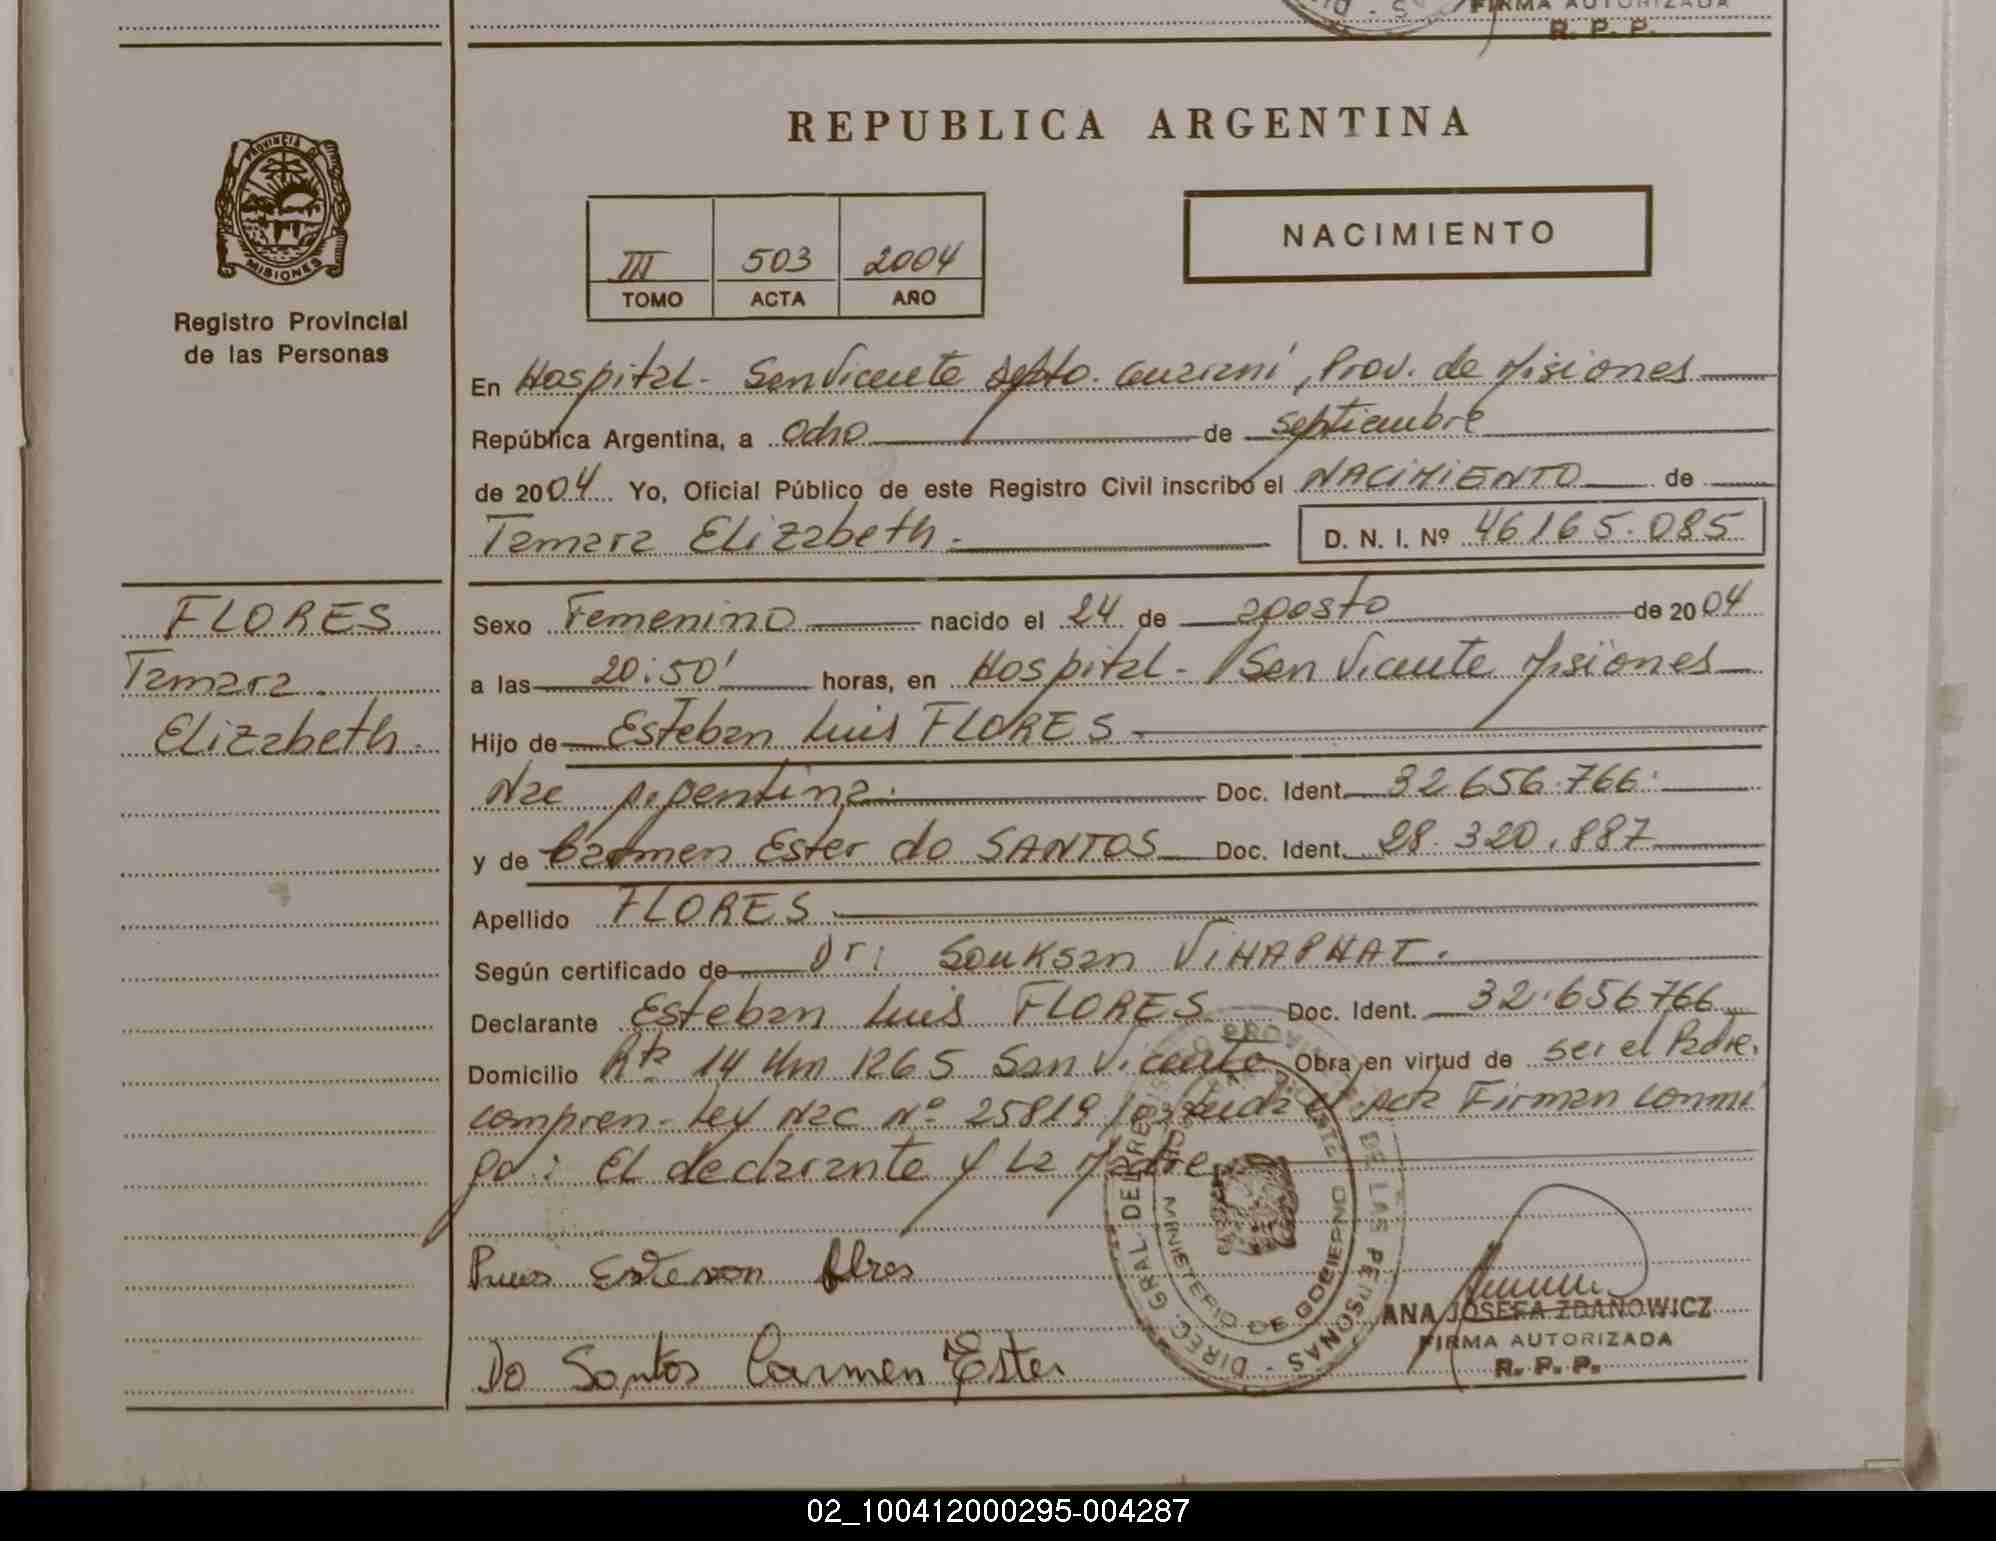 FIRMA AUTORIZADA
R. P. P.
PROVINCIA DE
MISIONES
Registro Provincial
de las Personas
REPUBLICA ARGENTINA
III 503 2004
TOMO ACTA AÑO
NACIMIENTO
En Hospital - San Vicente Depto. Guaraní, Prov. de Misiones
República Argentina, a ocho de septiembre
de 2004 Yo, Oficial Público de este Registro Civil inscribo el NACIMIENTO de
Tamara Elizabeth. D. N. I. Nº 46165.085
FLORES
Tamara
Elizabeth.
Sexo Femenino nacido el 24 de agosto de 2004
a las 20:50' horas, en Hospital - San Vicente Misiones
Hijo de Esteban Luis FLORES
Nac Argentina. Doc. Ident. 32.656.766
y de Carmen Ester do SANTOS Doc. Ident. 28.320.887
Apellido FLORES
Según certificado de Dr: Souksan VIHAPHAT.
Declarante Esteban Luis FLORES Doc. Ident. 32.656766
Domicilio Rta 14 Km 1265 San Vicente Obra en virtud de ser el Padre.
compren. Ley Nac Nº 25819 Acta Firman conmi
go: El declarante y La Madre
Do Santos Carmen Ester
DIREC. GRAL. DEL REGISTRO PROVINCIAL DE LAS PERSONAS
MINISTERIO DE GOBIERNO
ANA JOSEFA ZDANOWICZ
FIRMA AUTORIZADA
R. P. P.
02_100412000295-004287